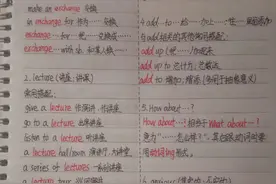 make an exchange 交换
in exchange for 作为……交换
exchange … for 用…交换……
exchange … with sb. 和某人换…
2. lecture (讲座, 讲课)
常见搭配:
give a lecture 作演讲, 作讲座
go to a lecture 去听讲座
listen to a lecture 听讲座
a lecture hall/room 演讲厅, 大讲堂
a series of lectures 一系列讲座
a lecture tour
4 add … to … 给…加上…
add up (把…)加起来
add up to 总计为, 总数达
add to 增加, 增添
5. How about …?
How about …? 相当于 What about …?
意为"…怎么样?"
用动词ing形式。